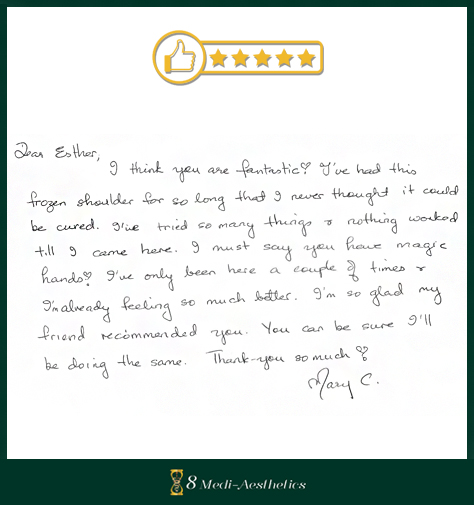 Dear Esther,
I think you are fantastic! I've had this
frozen shoulder for so long that I never thought it could
be cured. I've tried so many things & nothing worked
till I came here. I must say you have magic
hands! I've only been here a couple of times &
I'm already feeling so much better. I'm so glad my
friend recommended you. You can be sure I'll
be doing the same. Thank-you so much!
Mary C.
8 Medi-Aesthetics